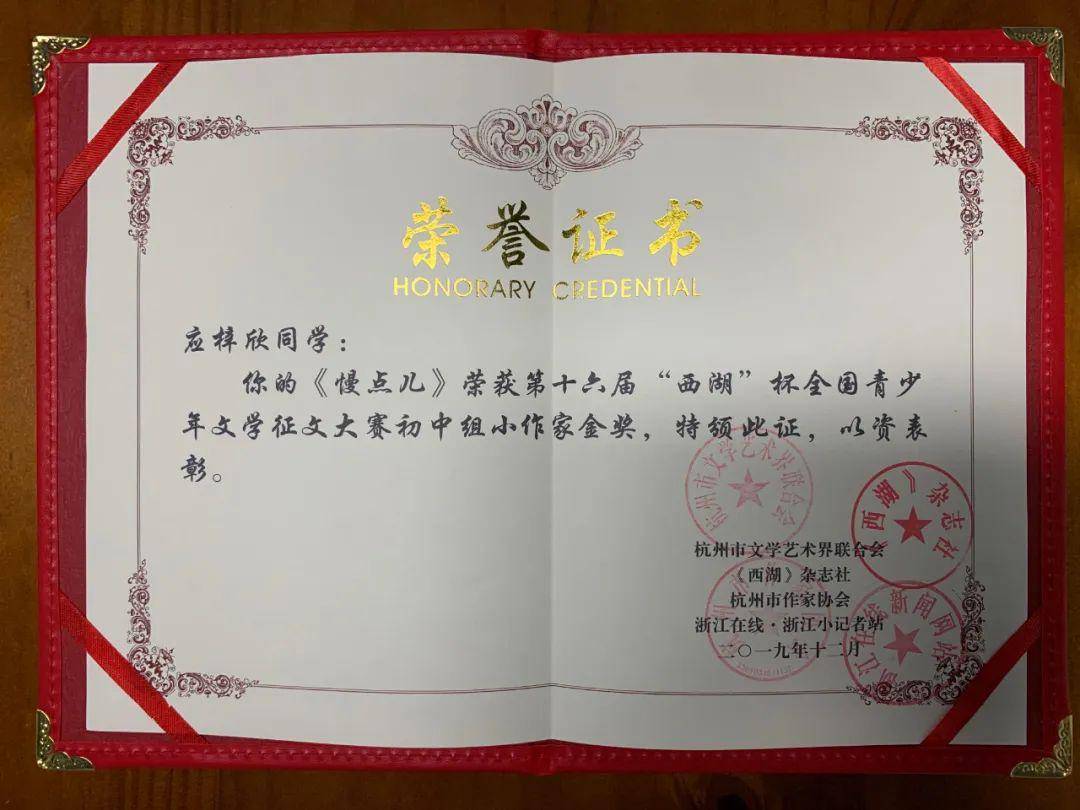 荣誉证书
HONORARY CREDENTIAL
应梓欣同学：
你的《慢点儿》荣获第十六届“西湖”杯全国青少
年文学征文大赛初中组小作家金奖，特颁此证，以资表
彰。
杭州市文学艺术界联合会
《西湖》杂志社
杭州市文学艺术界联合会
《西湖》杂志社
杭州市作家协会
浙江在线·浙江小记者站
二〇一九年十二月
浙江在线新闻网站